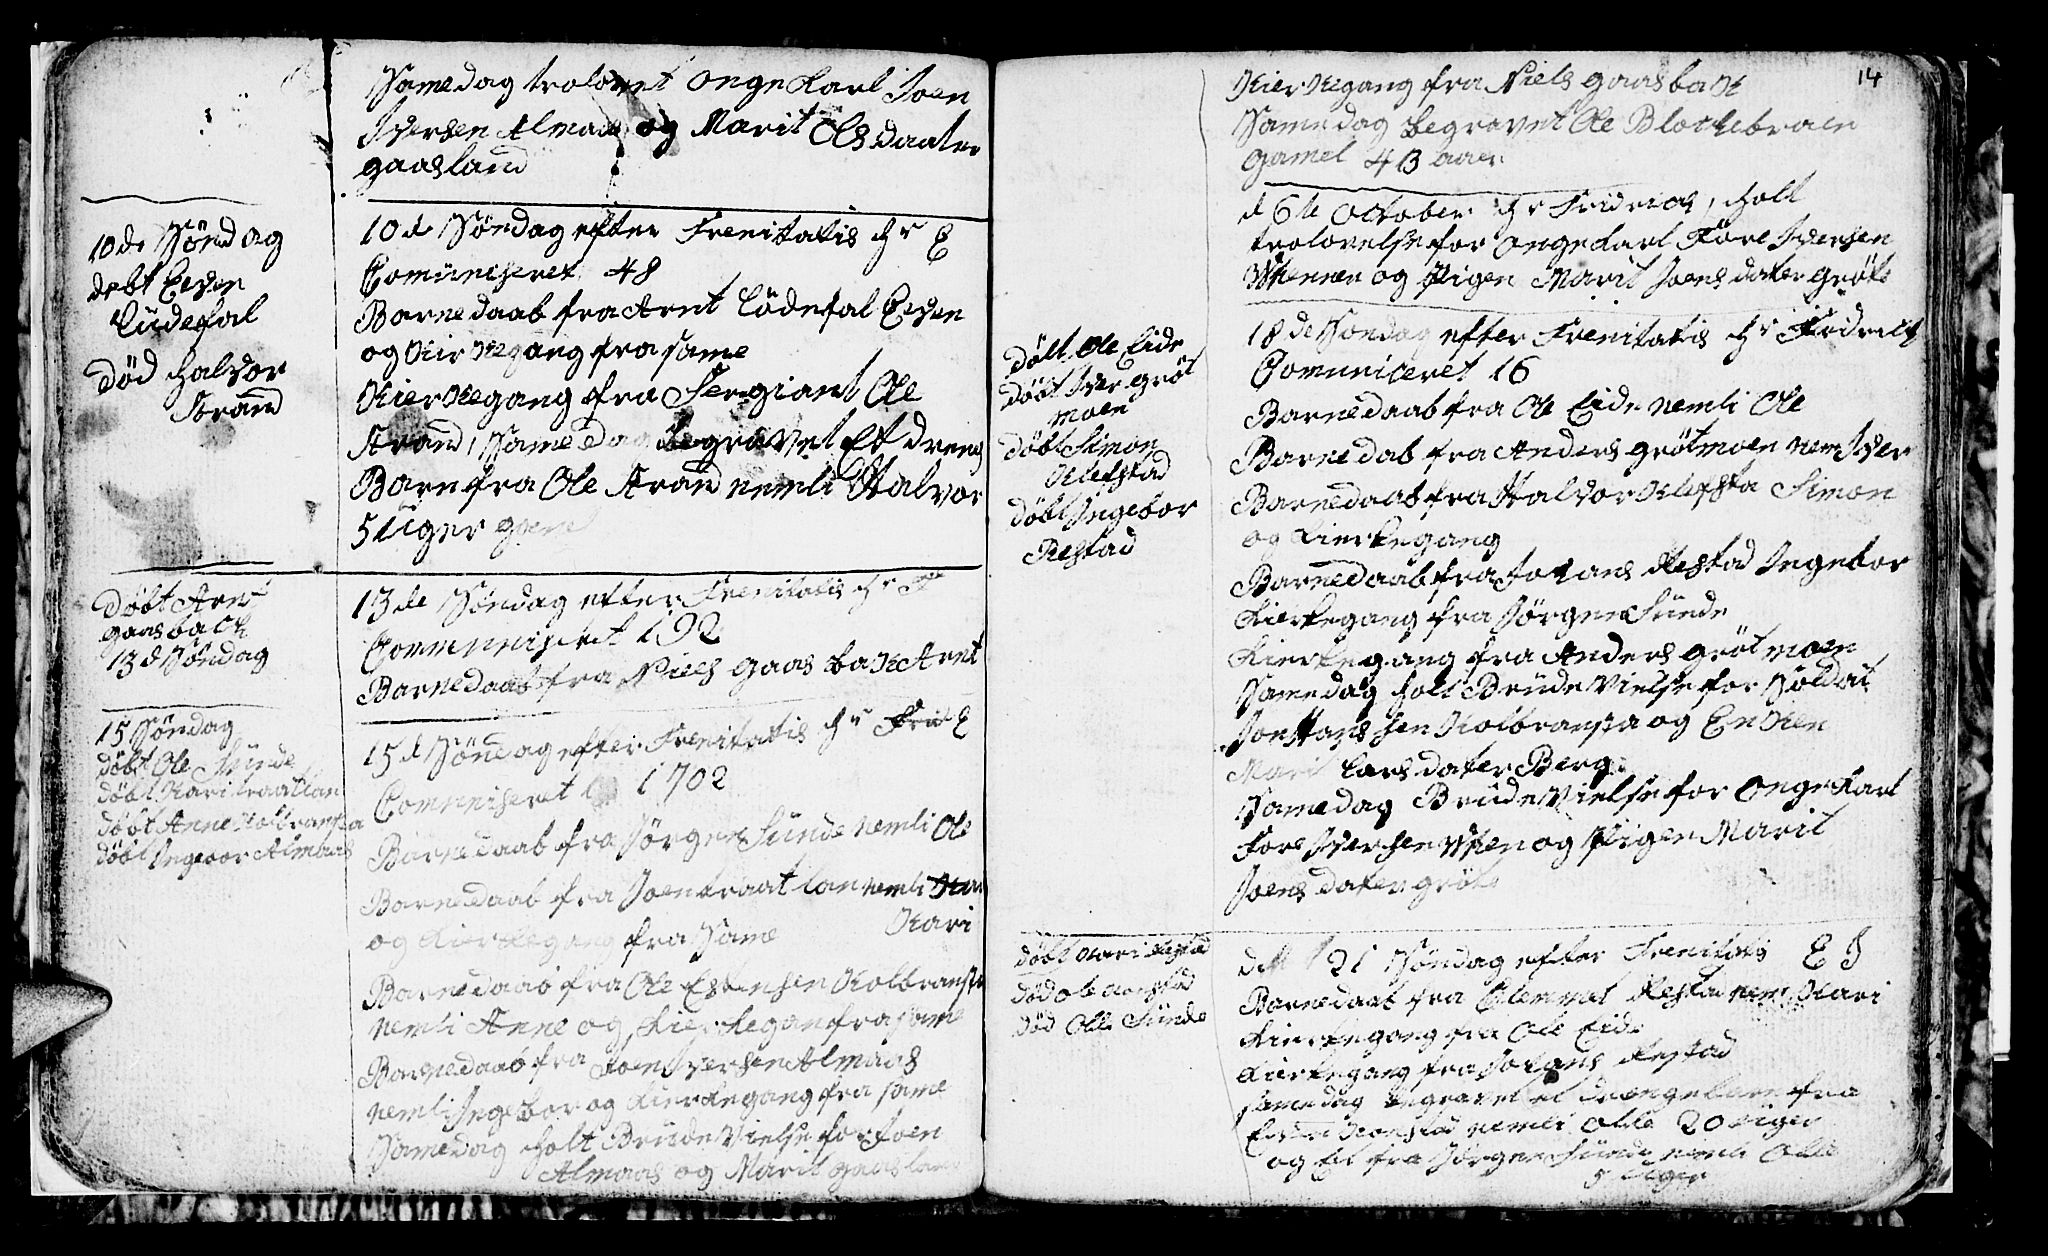 Same dag trolovet Ongekarl Joen
Iversen Almaas og Marit Olsdaater
gaasland
10de Søndag
døbt Eesten
Lüdefal
død halvor
Strand
10de Søndag efter Trenitatis hr E
Comüniseret 48
Barnedaab fra Arnt Lødefal Eesten
og Kierkegang fra same
Kierkegang fra Sergiant Ole
Strand, Samedag begravet Et dreng
Barn fra Ole Strand nemli Halvor
5 üger
Døbt Arnt
gaasback
13d Søndag
13de Søndag efter Trenitatis hr F
Communiseret 192
Barnedaab fra Niels Gaasbak Arnt
15 Søndag
døbt Ole Sünde
døbt Kari traatlan
døbt Anne Kolbransta
døbt Ingebor Almaas
15d Søndag efter Trenitatis hr E
Communiseret 1702
Barnedaab fra Jørgen Sünde nemli Ole
Barnedaab fra Joen traatlan nemli
Kari
og Kierkegang fra Same
Barnedaab fra Ole Estensen Kolbransta
nemli Anne og Kierkegan fra same
Barnedaab fra Joen Iversen Almaas
nemli Ingebor og Kierkegang fra same
Samedag holt Brüdevielse for Joen
Almaas og Marit gaaslan
14
Kierkegang fra Niels gaasbak
Samedag begravet Ole Blockebraen
gamel 43 aaer
d 6te October hr Fridrich, holt
trolovelse for Ongekarl Tore Iversen
og Pigen Marit Joensdater grøte
Døbt Ole Eide
Døbt Iver grøt
moen
Døbt Simon
Klefstad
Døbt Ingebor
Restad
18de Søndag efter Trenitatis hr
Comuniceret 16
Barnedaab fra Ole Eide nemli Ole
Barnedab fra Anders grøtmoen nem Iver
Barnedaab fra Halvor Klefsta Simon
og Kierkegang
Barnedaab fra Johans Restad Ingebor
Kierkegang fra Jørgen Sünde
Kierkegang fra Anders grøtmoen
Samedag holt Brüdevielse for Soldat
Jon Hansen Kolbransta og Enken
Mari Larsdater Berg
Samedag Brüdevielse for Ongekarl
Tore Iversen og Pigen Marit
Joensdater grøte
døbt Kari Restad
død ole
død Olle Sünde
den 21 Søndag efter Trenitatis
Barnedaab fra Restad nem Kari
Kierkegang fra Ole Eide
Kierkegang fra Johans Restad
samedag begravet et drengebarn fra
nemli Olle 20 üger
og Et fra Jørgen Sünde nemli Olle
5 üger